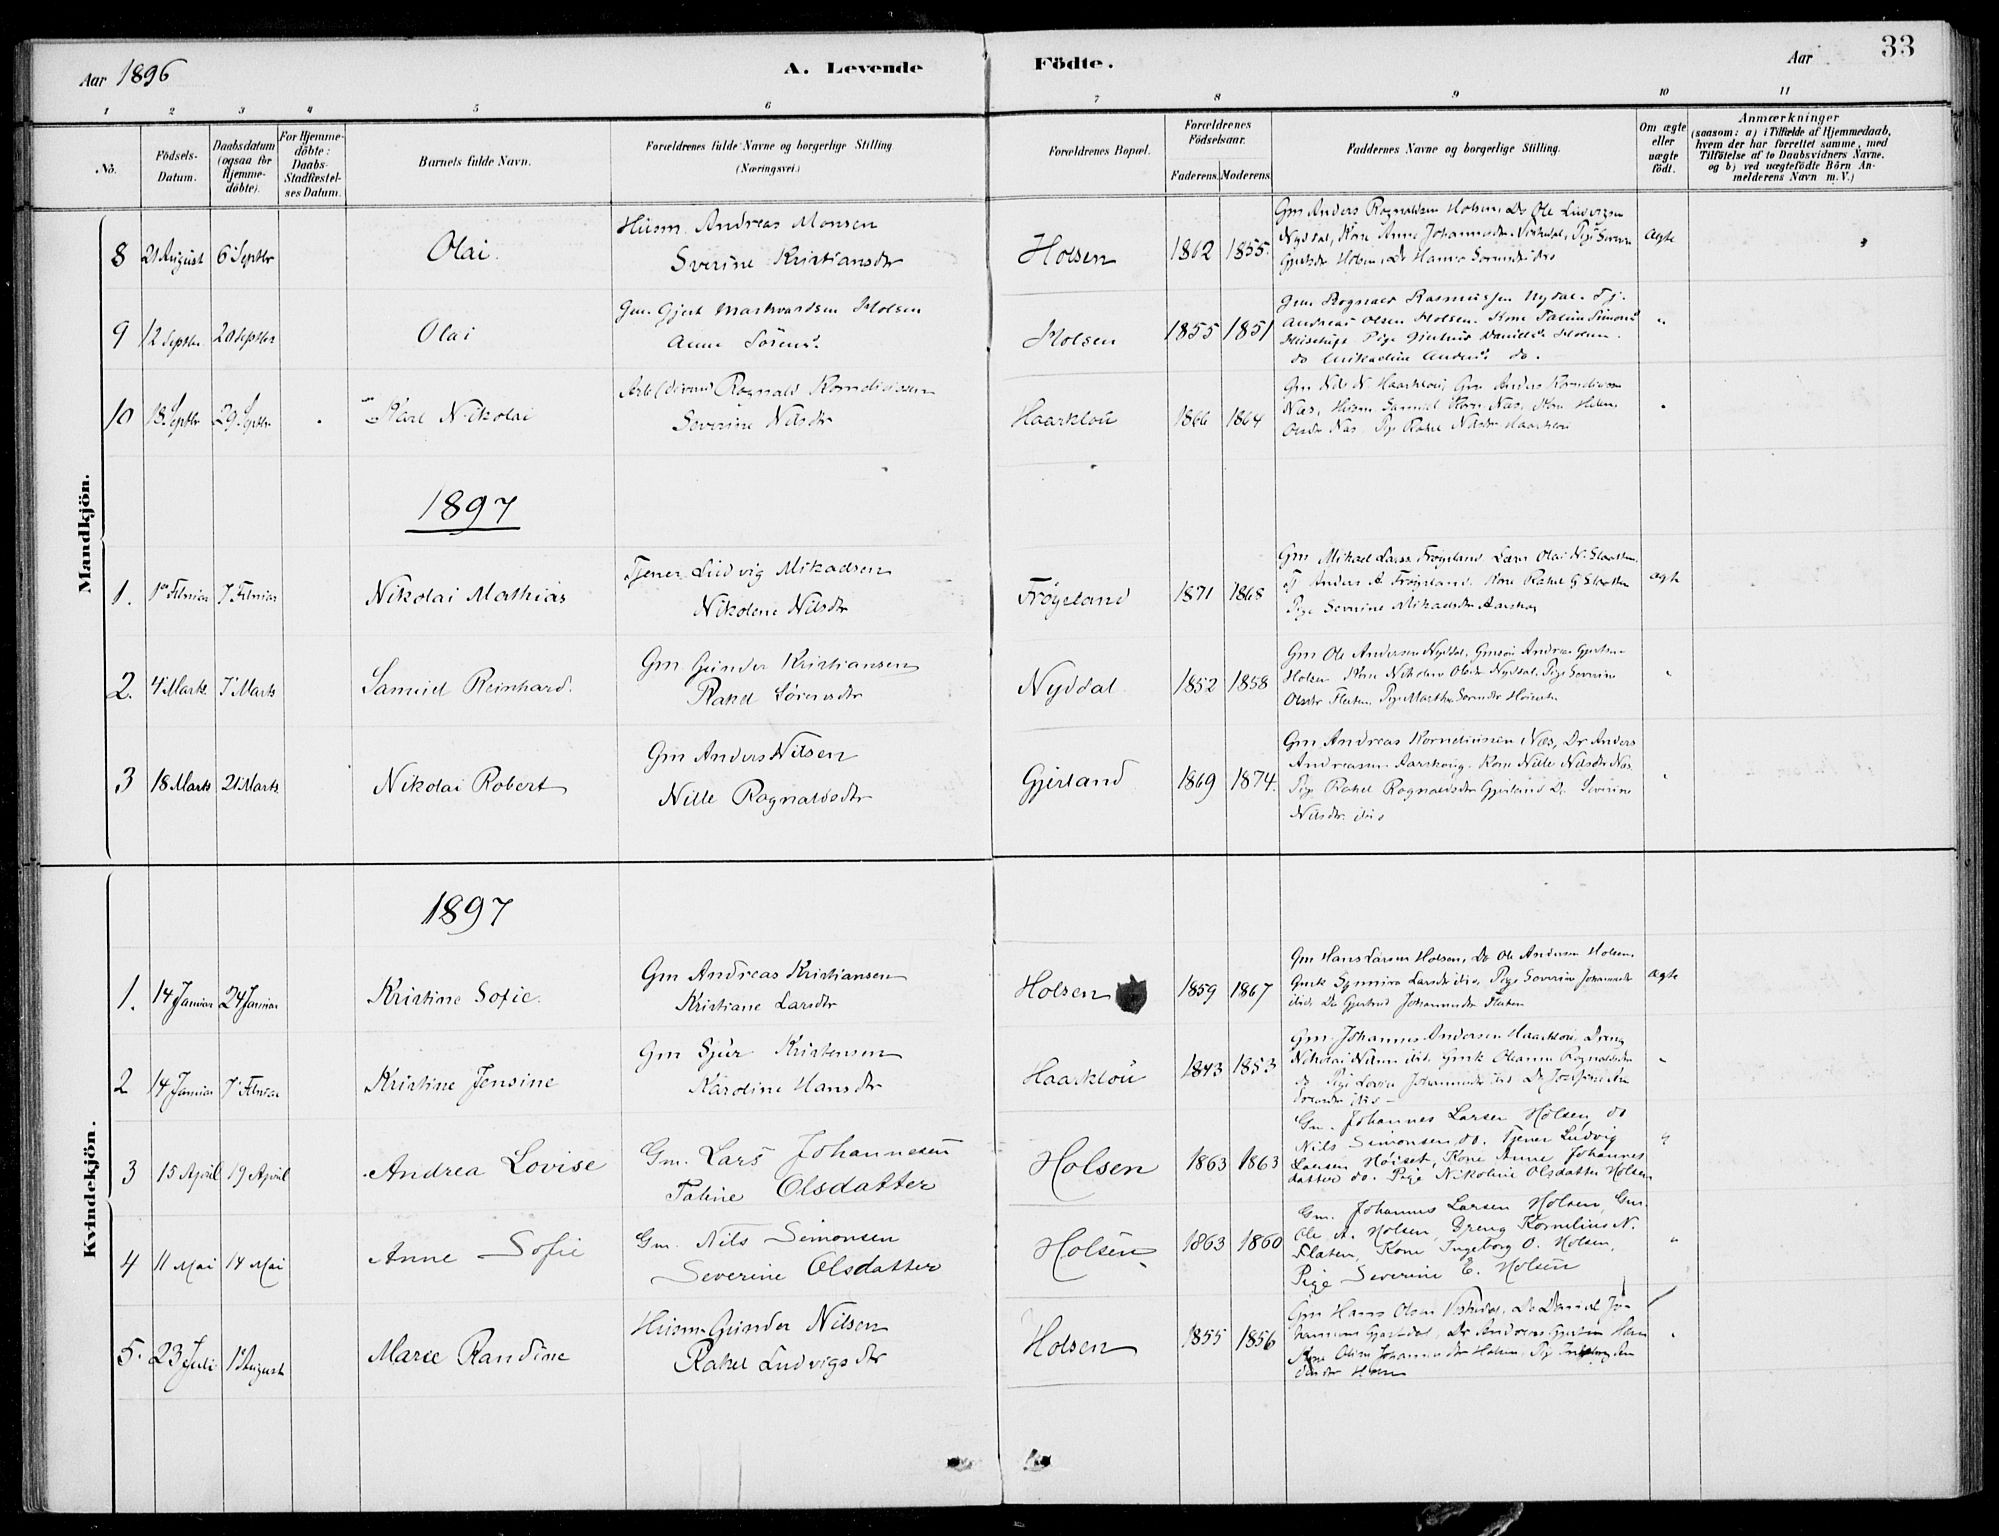 Aar 1896
A. Levende Födte.
Aar
33
1 2 3 4 5 6 7 8 9 10 11
No.
Födsels-
Datum.
Daabsdatum
(ogsaa for
Hjemme-
döbte).
For Hjemme-
döbte:
Daabs-
Stadfæstel-
ses Datum.
Barnets fulde Navn.
Forældrenes fulde Navne og borgerlige Stilling.
(Næringsvei.)
Forældrenes Bopæl.
Forældrenes
Födselsaar.
Faderens. Moderens.
Faddernes Navne og borgerlige Stilling.
Om ægte
eller
uægte
födt.
Anmærkninger
(saasom: a) i Tilfælde af Hjemmedaab,
hvem der har forrettet samme, med
Tilföielse af to Daabsvidners Navne.
og b) ved uægtefödte Börn An-
melderens Navn m. V.)
Mandkjön.
8 21 August 6 Septbr Olai.
Husm. Andreas Monsen
Sverine Kristiansdr
Holsen 1862 1855.
Gm Anders Rognaldsen Holsen, Do Ole Ludvigsen
Nydal, Kone Anne Johannesdr
Holsen, Do
Ægte
9 12 Septbr 20 Septbr Olai
Gm. Gjert Markvardsen Holsen
Anne Sörensd.
Holsen 1855 1851
Gm. Rognald Rasmussen Nydal. Tj.
Andreas Olsen Holsen. Kone Taline Simonsd
Pige Gjertrud Daniels Holsen.
do Mikaeline Anders. do.
"
10 18 Septbr 29 Septbr Karl Nikolai
Rognald Korneliussen
Severine Nilsdr
Haarklou 1866 1864
Gm Nils N Haarklou, Gm Anders Korneliussen
Næs, Husm Samuel Korn Næs, Kone Helene
Olsdr Næs, Pige Rakel Nilsdr Haarklou
"
1897
1. 1ste Februar 7 Februar Nikolai Mathias
Tjener Ludvig Mikaelsen
Nikolene Nilsdr
Frøyeland 1871 1868
Gm Mikael Larss Frøyeland Lærer Olai N. Slaatten
Tj Anders A Frøyeland. Kone Rakel G Slaatten
Pige Severine Mikaelsdr Aarskog
ægte
2. 4 Marts 7 Marts Samuel Reinhard.
Gm. Gunder Kristiansen
Rakel Sörensdtr
Nyddal 1852 1858
Gm Ole Andersen Nyddal, Gmsøn Andreas Gjertsen
Holsen Kone Nikoline Olsdr Nyddal. Pige Severine
Olsdtr Flaten, Pige Marthe Sörensdtr
"
3 18 Marts 21 Marts Nikolai Robert
Gm Anders Nilsen
Nille Rognaldsdtr
Gjerland 1869 1874.
Gm Andreas Korneliussen Næs, Do Anders
Andreassen Aarskog. Kone Nille Nilsdtr Næs
Pige Rakel Rognaldsdtr Gjerland Do Severine
Nilsdtr ibid
"
Kvindekjön.
1897
1. 14 Januar 24 Januar Kristine Sofie.
Gm Andreas Kristiansen
Kristiane Larsdtr
Holsen 1859 1867
Gm Hans Larsen Holsen, Do Ole Andersen Holsen,
Gmk Synneva Larsdtr ibid, Pige Severine Johannesdtr
ibid, Do Gjertrud Johannesdtr Flaten
Ægte
2 14 Januar 7 Februar Kristine Jensine
Gm Sjur Kristensen
Karoline Hansdtr
Haarklou 1843 1853
Gm. Johannes Andersen Haarklou, Dreng
Nikolai ibid. Gmk Oleanna Rognaldsdtr
do Pige Lovise Johannesdtr ibid Do Josefine
ibid
"
3 15 April 19 April Andrea Lovise
Gm. Lars Johannesen
Taline Olsdatter
Holsen 1863 1863
Gm. Johannes Larsen Holsen, do
Nils Simonsen do. Tjener Ludvig
Larsen Høiset, Kone Anne Johannes
datter do. Pige Nikoline Olsdatter Holsen
"
4 11 Mai 14 Mai Anne Sofie
Gm. Nils Simonsen
Severine Olsdatter
Holsen 1863 1860
Gm. Johannes Larsen Holsen, Gm.
Ole A. Holsen, Dreng Kornelius N.
Flaten, Kone Ingeborg O. Holsen,
Pige Severine E. Holsen
"
5. 23 Juli 1 August Marie Randine
Husm. Gunder Nilsen
Rakel Ludvigsdtr
Holsen 1855 1856
Gm Hans Olsen Do Daniel Jo-
hannesen Do Andreas Gjertsen Holsen
Kone Oline Johannesdtr Holsen, Pige Ingeborg
Holsen
"